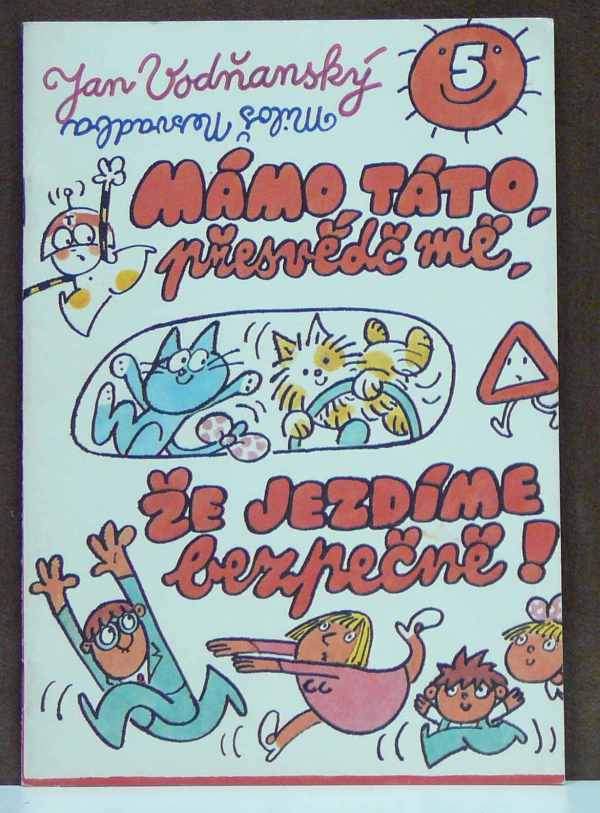 Jan Vodňanský
5
Miloš Nesvadba
MÁMO, TÁTO,
přesvědč mě,
ŽE JEZDÍME
bezpečně!